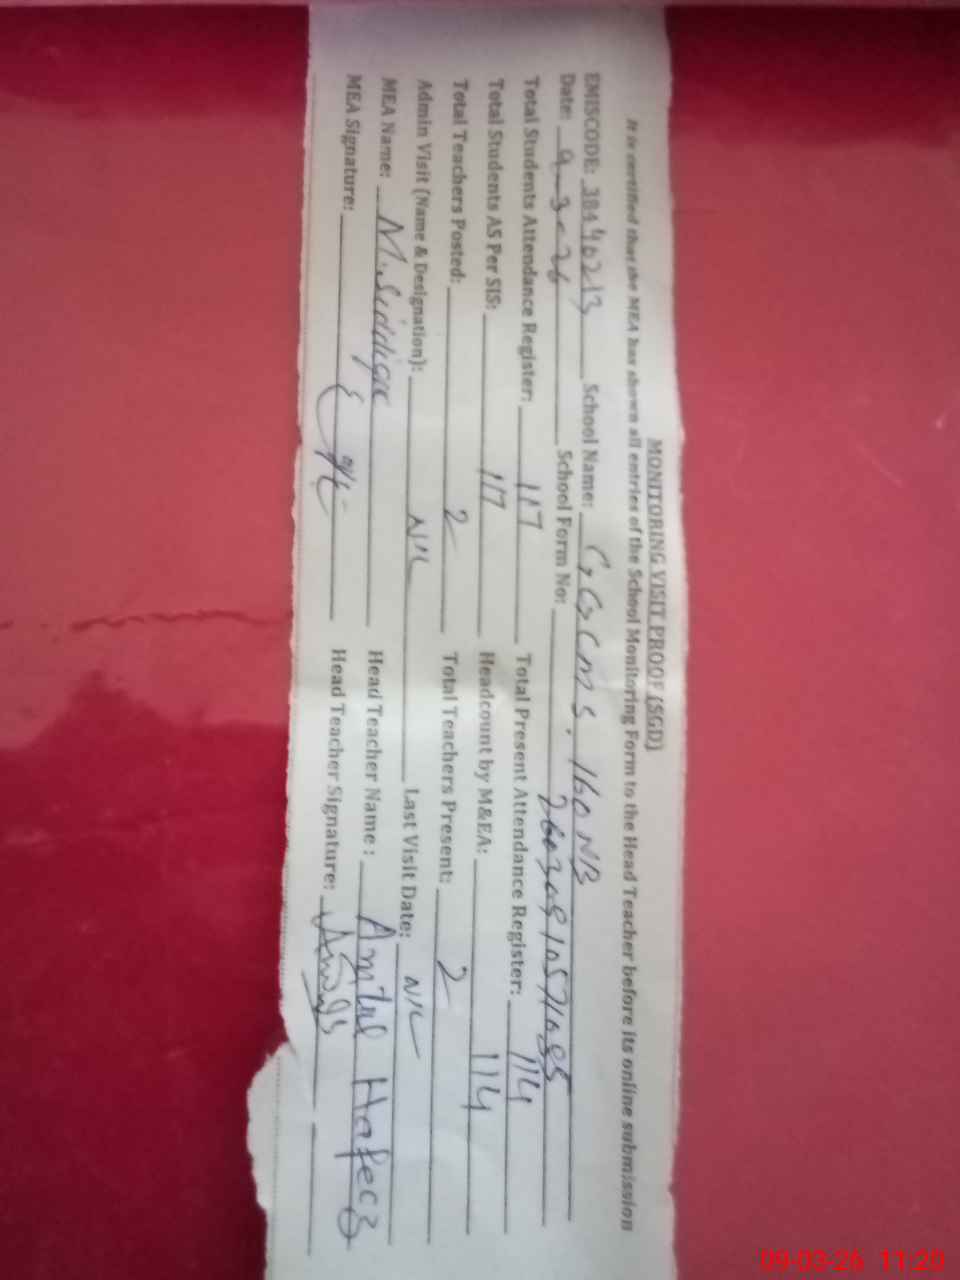 MONITORING VISIT PROOF (SGD)
It is certified that the MEA has shown all entries of the School Monitoring Form to the Head Teacher before its online submission
EMISCODE: 38440213 School Name: GGCMS. 160 NB
Date: 9-3-26 School Form No:
Total Students Attendance Register: 117 Total Present Attendance Register: 114
Total Students AS Per SIS: 117 Headcount by M&EA: 114
Total Teachers Posted: 2 Total Teachers Present: 2
Admin Visit (Name & Designation): Nil Last Visit Date: Nil
MEA Name: M. Siddique Head Teacher Name : Amtul Hafeez
MEA Signature: Head Teacher Signature:
09-03-26 11:20